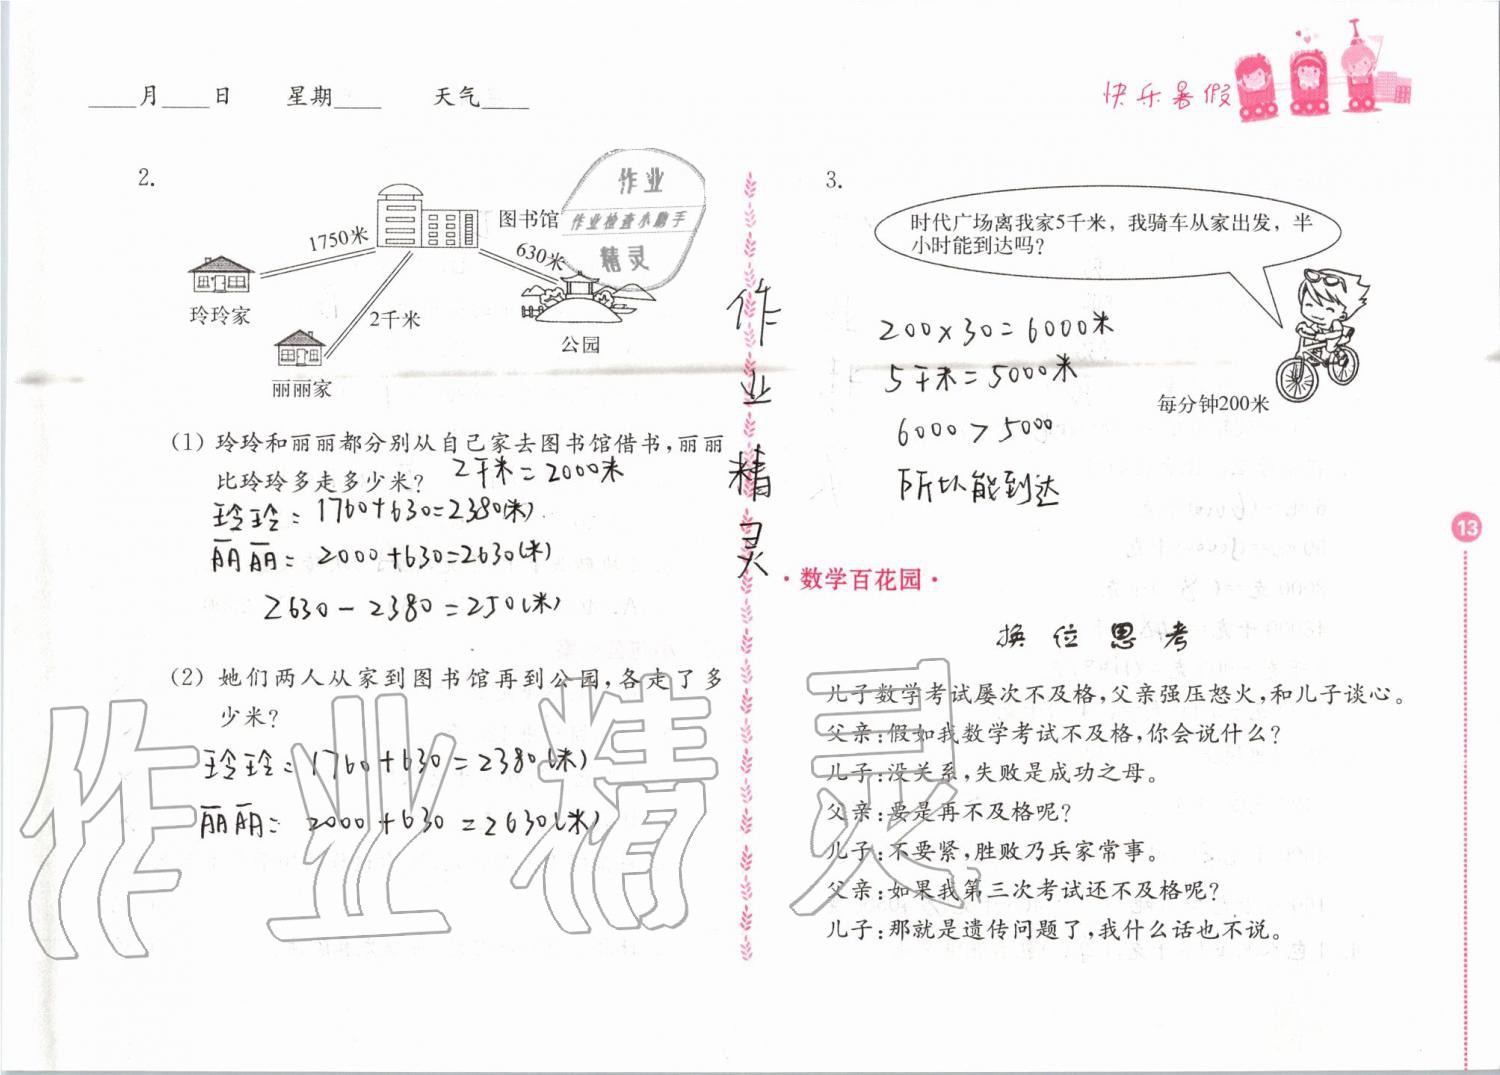 ____月____日 星期____ 天气____
快乐暑假
2.
图书馆
1750米
630米
玲玲家
2千米
公园
丽丽家
作业
作业检查小助手
精灵
(1) 玲玲和丽丽都分别从自己家去图书馆借书,丽丽
比玲玲多走多少米? 2千米=2000米
玲玲:1760+630=2380(米)
丽丽:2000+630=2630(米)
2630-2380=250(米)
(2) 她们两人从家到图书馆再到公园,各走了多
少米?
玲玲:1760+630=2380(米)
丽丽:2000+630=2630(米)
作业精灵
作业精灵
3.
时代广场离我家5千米,我骑车从家出发,半
小时能到达吗?
每分钟200米
200×30=6000米
5千米=5000米
6000>5000
所以能到达
13
·数学百花园·
换位思考
儿子数学考试屡次不及格,父亲强压怒火,和儿子谈心。
父亲:假如我数学考试不及格,你会说什么?
儿子:没关系,失败是成功之母。
父亲:要是再不及格呢?
儿子:不要紧,胜败乃兵家常事。
父亲:如果我第三次考试还不及格呢?
儿子:那就是遗传问题了,我什么话也不说。